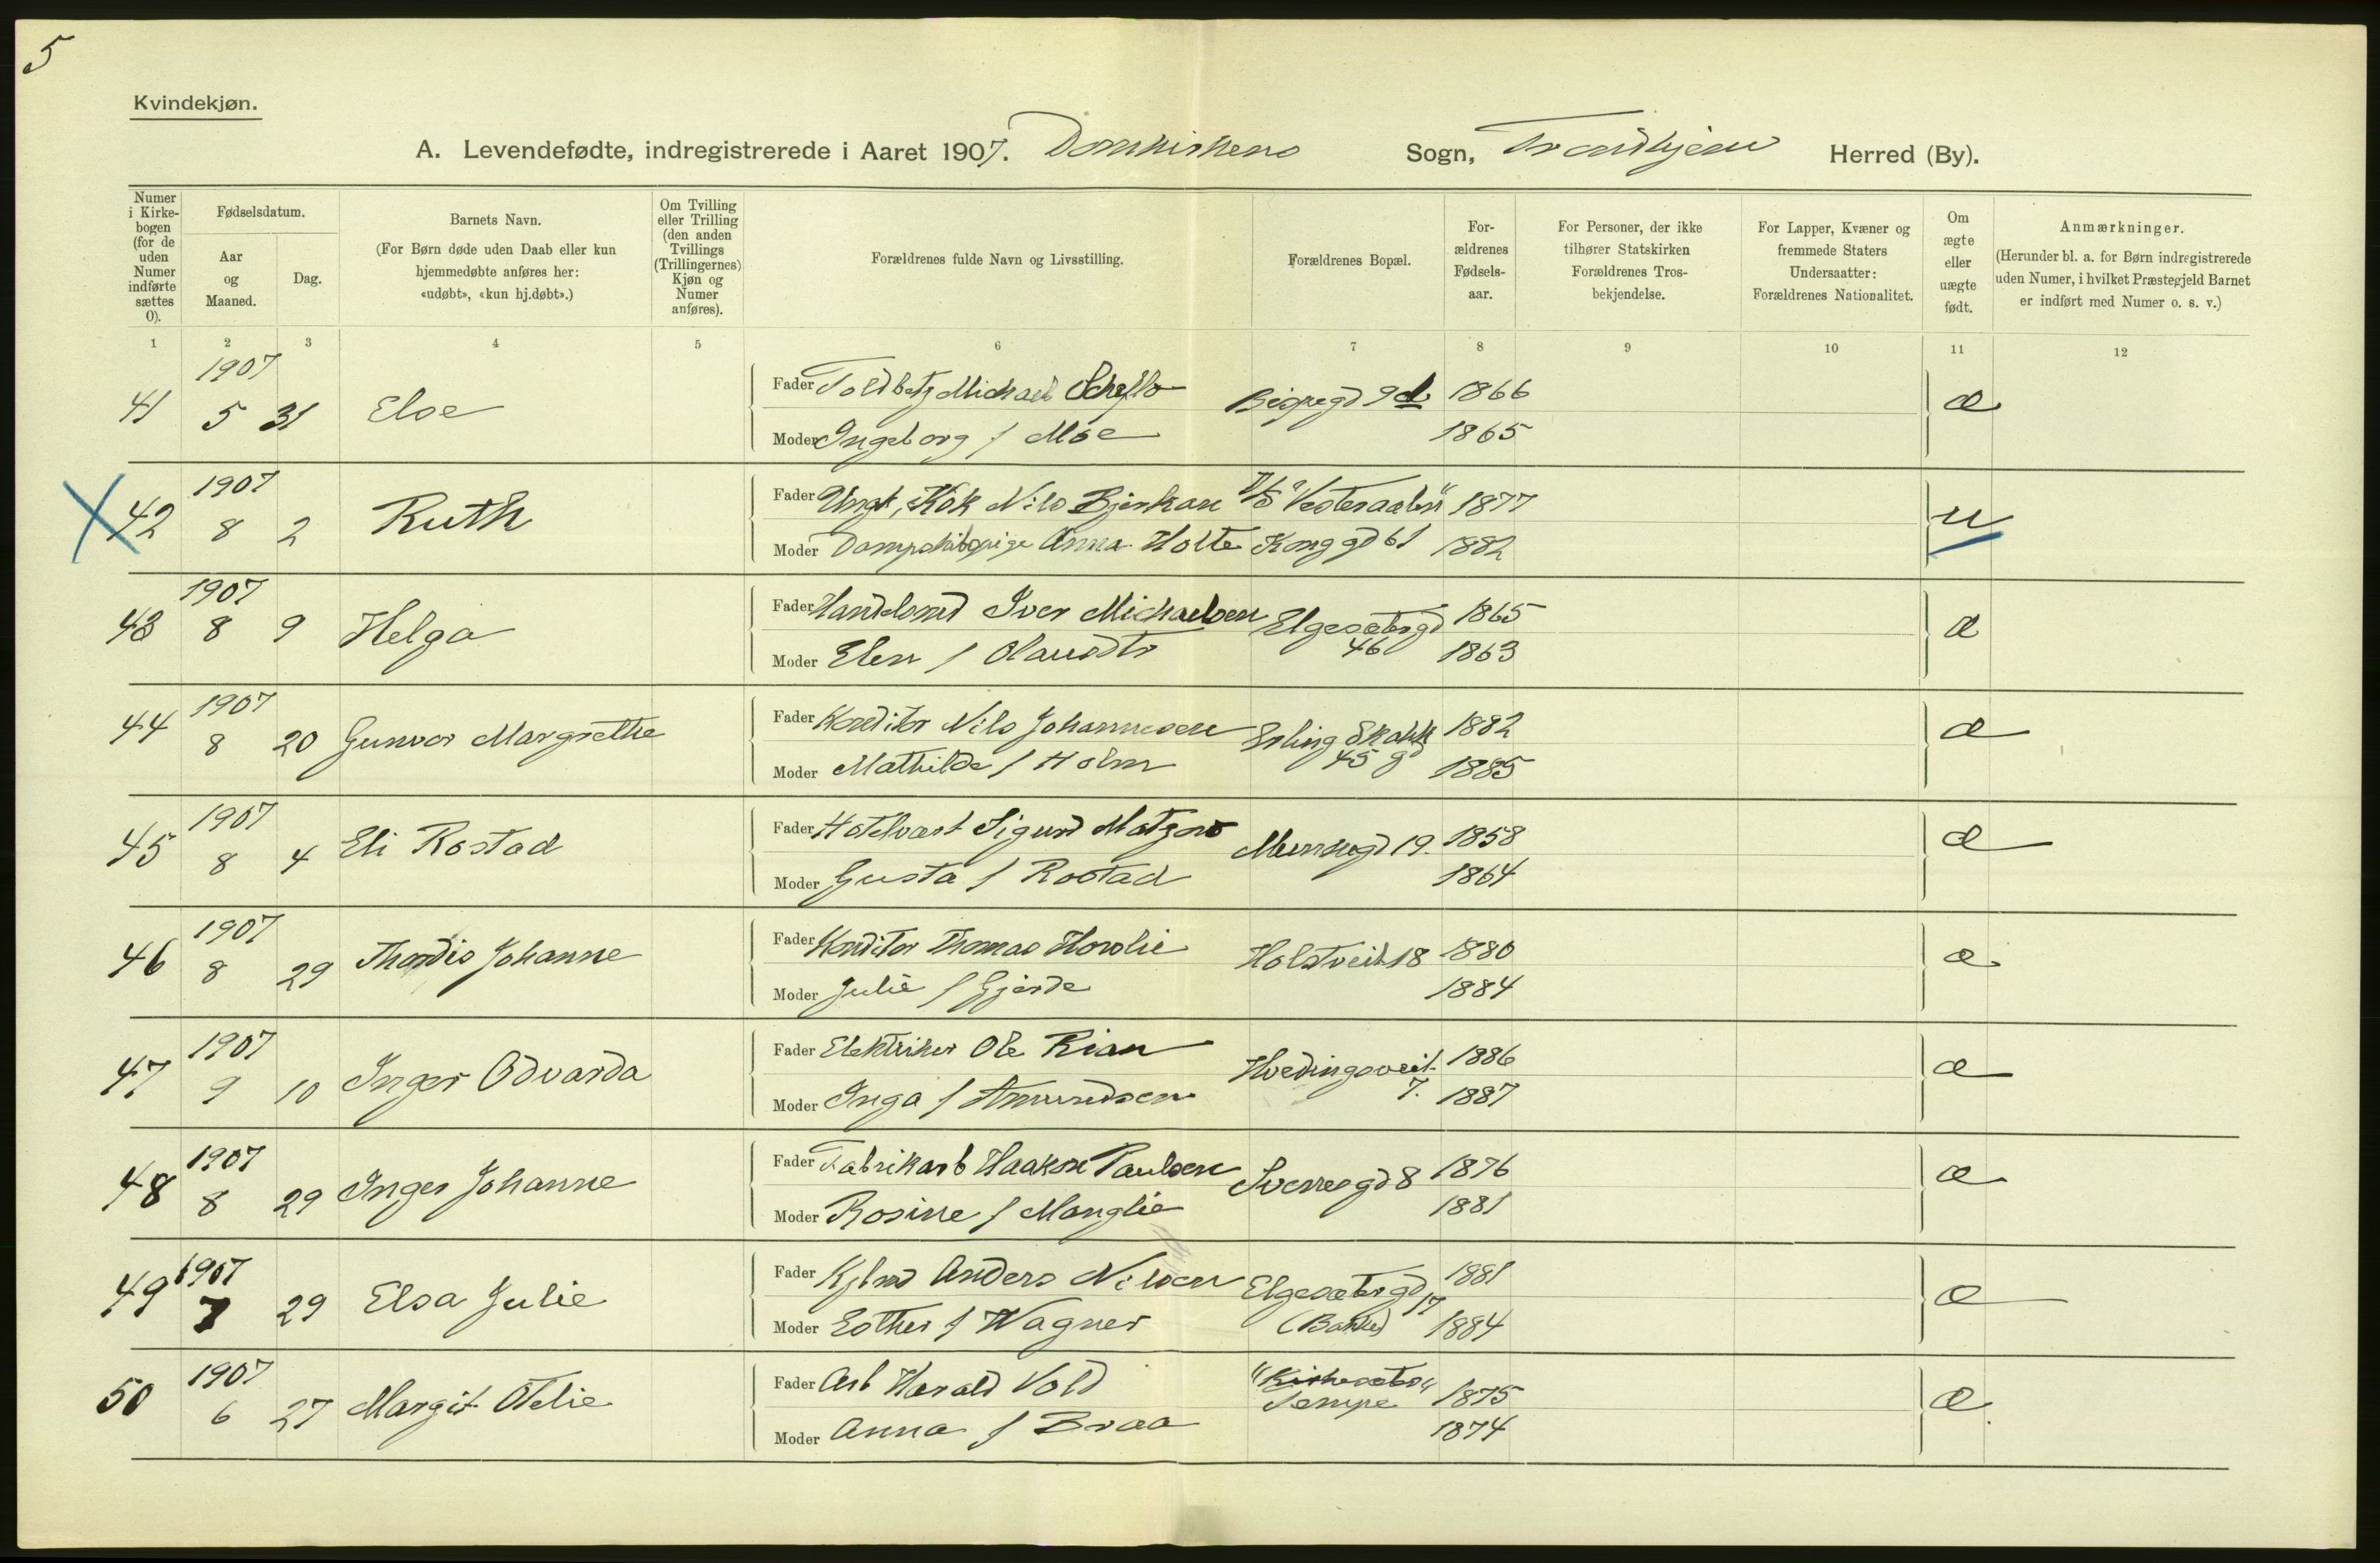 5
Kvindekjøn.
A. Levendefødte, indregistrerede i Aaret 1907. Domkirkens Sogn, Trondhjem Herred (By).
Numer i Kirkebogen (for de uden Numer indførte sættes 0).
Fødselsdatum.
Aar og Maaned.
Dag.
Barnets Navn.
(For Børn døde uden Daab eller kun hjemmedøbte anføres her: «udøbt», «kun hj.døbt».)
Om Tvilling eller Trilling (den anden Tvillings (Trillingernes) Kjøn og Numer anføres).
Forældrenes fulde Navn og Livsstilling.
Forældrenes Bopæl.
Forældrenes Fødselsaar.
For Personer, der ikke tilhører Statskirken Forældrenes Trosbekjendelse.
For Lapper, Kvæner og fremmede Staters Undersaatter: Forældrenes Nationalitet.
Om ægte eller uægte født.
Anmærkninger.
(Herunder bl. a. for Børn indregistrerede uden Numer, i hvilket Præstegjeld Barnet er indført med Numer o. s. v.)
1 2 3 4 5 6 7 8 9 10 11 12
41 1907 5 31 Else
Fader Toldbetj Michael Scheflo Bispegd 9d 1866 æ
Moder Ingeborg f Moe 1865
42 1907 8 2 Ruth
Fader Ungk, Kok Nils Bjerkan D/S "Vesteraalen" 1877 u
Moder Dampskibspige Anna Holte Konggd 61 1882
43 1907 8 9 Helga
Fader Handelsmd Iver Michaelsen Elgesætergd 1865 æ
Moder Elen f Olausdtr 46 1863
44 1907 8 20 Gunvor Margrethe
Fader Konditor Nils Johannesen Erling Skakk 1882 æ
Moder Mathilde f Holm 45 gd 1885
45 1907 8 4 Eli Rostad
Fader Hotelvært Sigurd Matzow Munkegd 19. 1858 æ
Moder Gusta f Rostad 1864
46 1907 8 29 Thordis Johanne
Fader Konditor Thomas Hovslie Holstveit 18 1880 æ
Moder Julie f Gjerde 1884
47 1907 9 10 Inger Odvarda
Fader Elektriker Ole Rian Hvedingsveit. 1886 æ
Moder Inga f Amundsen 7. 1887
48 1907 8 29 Inger Johanne
Fader Fabrikarb Haakon Paulsen Sverresgd 8 1876 æ
Moder Rosine f Manglie 1881
49 1907 7 29 Elsa Julie
Fader Kjbmd Anders Nilsen Elgesætergd 17 1881 æ
Moder Esther f Wagner (Bakke) 1884
50 1907 6 27 Margit Otelie
Fader Arb Harald Vold "Kirkesæter" Sempe 1875 æ
Moder Anna f Braa 1874